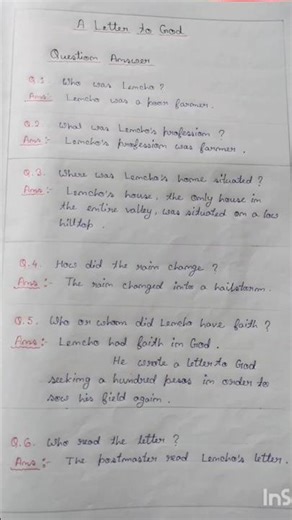 A Letter to God
Question Answer
Q.1 Who was Lemcho?
Ans:- Lemcho was a poor farmer.
Q.2 What was Lemcho's profession?
Ans:- Lemcho's profession was farmer.
Q.3. Where was Lemcho's home situated?
Ans:- Lemcho's house, the only house in
the entire valley, was situated on a low
hilltop.
Q.4. How did the rain change?
Ans:- The rain changed into a hailstorm.
Q.5. Who or whom did Lencho have faith?
Ans:- Lemcho had faith in God.
He wrote a letter to God
seeking a hundred pesos in order to
sow his field again.
Q.6. Who read the letter?
Ans:- The postmaster read Lemcho's letter.
InS